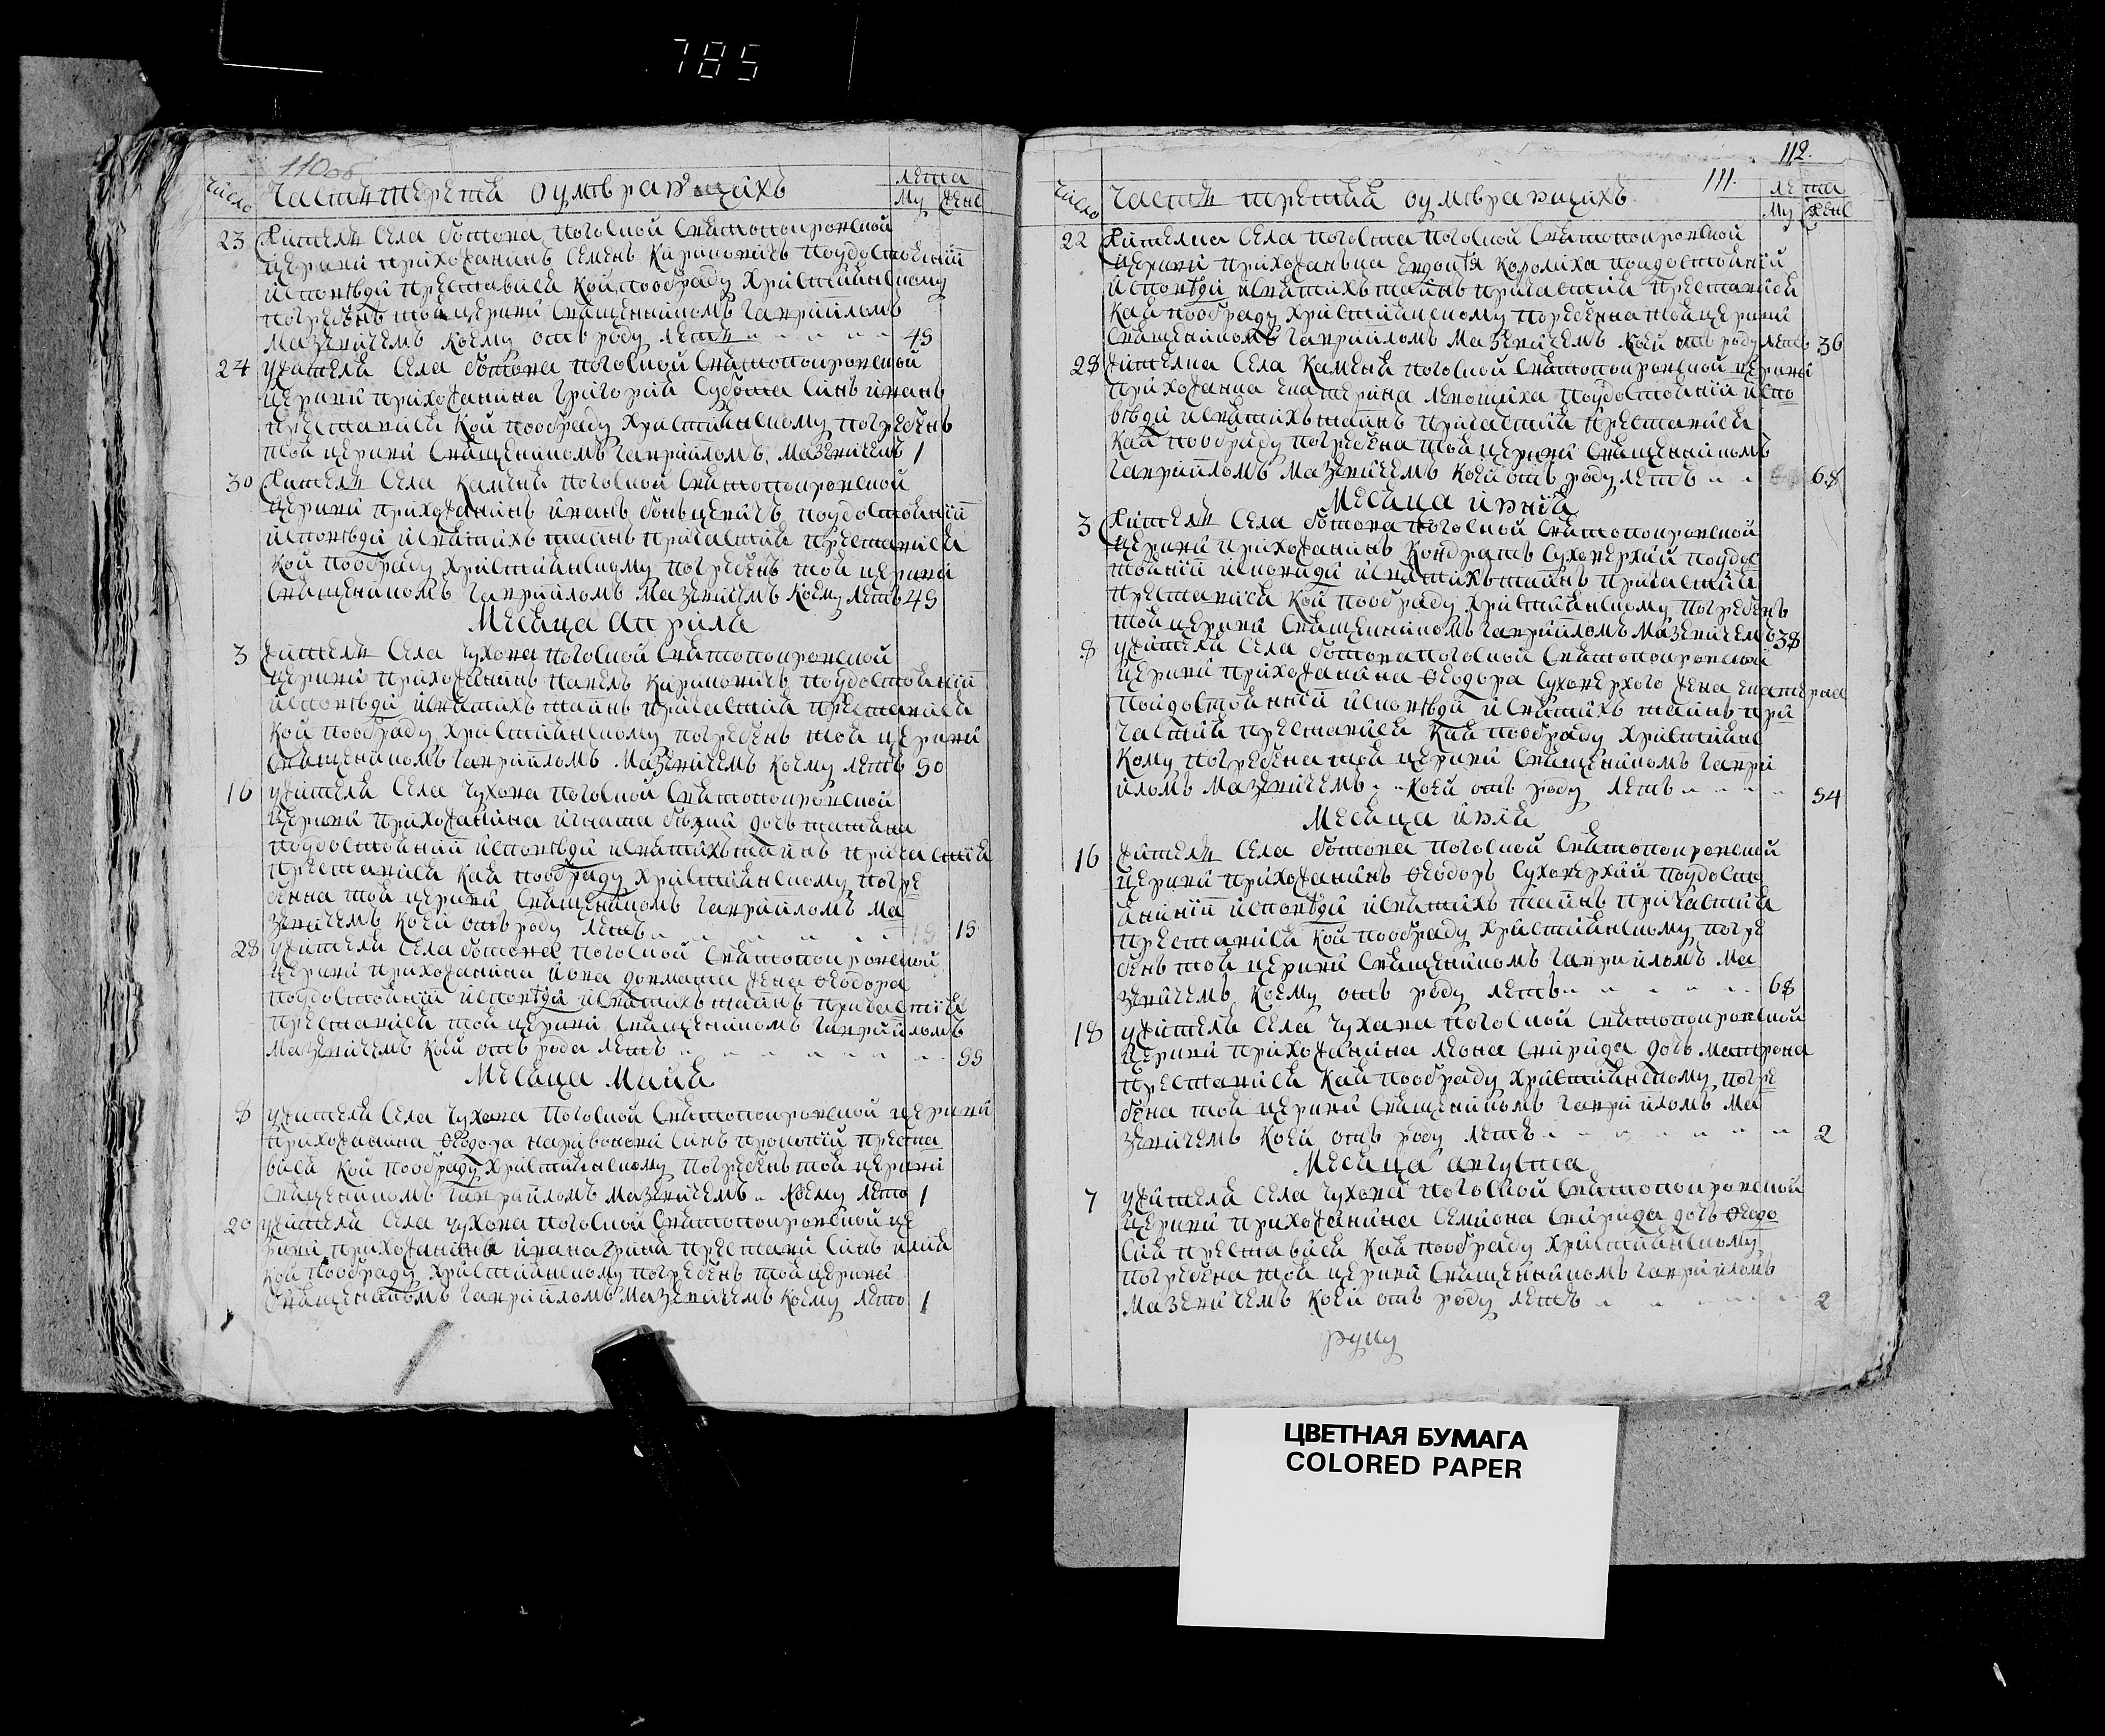 785
110 об
Число Часть третья о умирающихъ лета
Му Жене
23 Житель села Ботова поповской Святопокровской
церкви прихожанинъ Семенъ Карповичь по удостоении
исповеди преставися кой по обряду християнскому
погребенъ той церкви священникомъ Гавриилом
Мазевичемъ коему отъ роду летъ 45
24 У жителя села Ботова поповской Святопокровской
церкви прихожанина Григория Суббота синъ Иванъ
преставися кой по обряду християнскому погребенъ
той церкви священникомъ Гавриилом Мазевичемъ 1
30 Житель села Камены поповской Святопокровской
церкви прихожанинъ Иванъ по удостоении
исповеди и святихъ таинъ причастия преставися
кой по обряду християнскому погребенъ той церкви
священникомъ Гавриилом Мазевичемъ коему летъ 45
Месяца Априля
3 Житель села Чухова поповской Святопокровской
церкви прихожанинъ Павелъ Карповичь по удостоении
исповеди и святихъ таинъ причастия преставися
кой по обряду християнскому погребенъ той церкви
священникомъ Гавриилом Мазевичемъ коему летъ 50
16 У жителя села Чухова поповской Святопокровской
церкви прихожанина Игната дочь Татияна
по удостоении исповеди и святихъ таинъ причастия
преставися кая по обряду християнскому погре
бенна той церкви священникомъ Гавриилом Ма
зевичемъ коей отъ роду летъ 15
28 У жителя села Ботова поповской Святопокровской
церкви прихожанина Иова жена Феодора
по удостоении исповеди и святихъ таинъ причастия
преставися той церкви священникомъ Гавриилом
Мазевичемъ коей отъ рода летъ 55
Месяца Маия
8 У жителя села Чухова поповской Святопокровской церкви
прихожанина Феодора синъ Прокопий преста
вися кой по обряду християнскому погребенъ той церкви
священникомъ Гавриилом Мазевичемъ коему лето 1
20 У жителя села Чухова поповской Святопокровской це
ркви прихожанина Ивана престави синъ Илия
кой по обряду християнскому погребенъ той церкви
священникомъ Гавриилом Мазевичемъ коему лето 1
112.
111.
Число Часть третия о умирающихъ лета
Му Жене
22 Жителка села Погоста поповской Святопокровской
церкви прихожанка Евдокия Королиха по удостоении
исповеди и святихъ таинъ причастия преставися
кая по обряду християнскому погребенна той церкви
священникомъ Гавриилом Мазевичемъ коей отъ роду летъ 36
28 Жителка села Камены поповской Святопокровской церкви
прихожанка Екатерина по удостоении испо
веди и святихъ таинъ причастия преставися
кая по обряду погребена той церкви священникомъ
Гавриилом Мазевичемъ коей отъ роду летъ 68
Месяца Июния
3 Житель села Ботова поповской Святопокровской
церкви прихожанинъ Кондратъ Суховерхий по удос
тоении исповиди и святихъ таинъ причастия
преставися кой по обряду християнскому погребенъ
той церкви священникомъ Гавриилом Мазевичемъ 38
8 У жителя села Ботова поповской Святопокровской
церкви прихожанина Феодора Суховерхого жена Екатерина
по удостоении исповеди и святихъ таинъ при
частия преставися кая по обряду християнс
кому погребена той церкви священникомъ Гаври
иломъ Мазевичемъ коей отъ роду летъ 54
Месяца Июлия
16 Житель села Ботова поповской Святопокровской
церкви прихожанинъ Феодоръ Суховерхий по удосто
ении исповеди и святихъ таинъ причастия
преставися кой по обряду християнскому погре
бенъ той церкви священникомъ Гавриилом Ма
зевичемъ коему отъ роду летъ 68
18 У жителя села Чухова поповской Святопокровской
церкви прихожанина Леона Свирида дочь Матрона
преставися кая по обряду християнскому погре
бена той церкви священникомъ Гавриилом Ма
зевичемъ коей отъ роду летъ 2
Месяца Августа
7 У жителя села Чухова поповской Святопокровской
церкви прихожанина Семиона Свирида дочь Феодо
сия преставися кая по обряду християнскому
погребена той церкви священникомъ Гавриилом
Мазевичемъ коей отъ роду летъ 2
руку
ЦВЕТНАЯ БУМАГА
COLORED PAPER